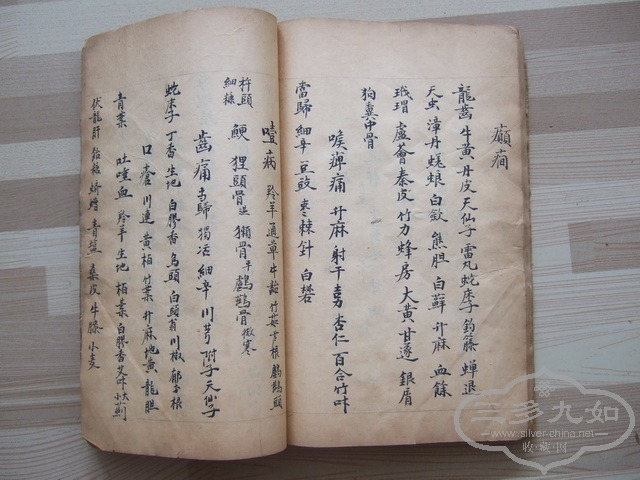 癲癇
龍齒 牛黃 丹皮 天仙子 雷丸 蛇床子 鈎藤 蟬退
天虫 漳丹 蜣蜋 白歛 熊胆 白蘚 升麻 血餘
玳瑁 盧薈 秦皮 竹力 蜂房 大黃 甘遂 銀屑
狗糞中骨
喉痺痛 升麻 射干 杏仁 百合 竹叶
當歸 細辛 豆豉 枣棘針 白礬
噎病 羚羊 通草 牛 竹茹 根 頭
杵頭細糠
鯁 狸頭骨 獺骨 骨 寒
齒痛 當歸 獨活 細辛 川芎 附子 天仙子
蛇床子 丁香 生地 白膠香 烏頭 白頭翁 川椒 郁李根
口瘡 川連 黃柏 竹葉 升麻 地黃 龍胆
青葉
吐噎血 羚羊 生地 柏葉 白膠香 艾叶 大薊
伏龍肝 飴糖 青藍 桑皮 牛膝 小麦
三多九如
www.silver-china.net
收·藏·网